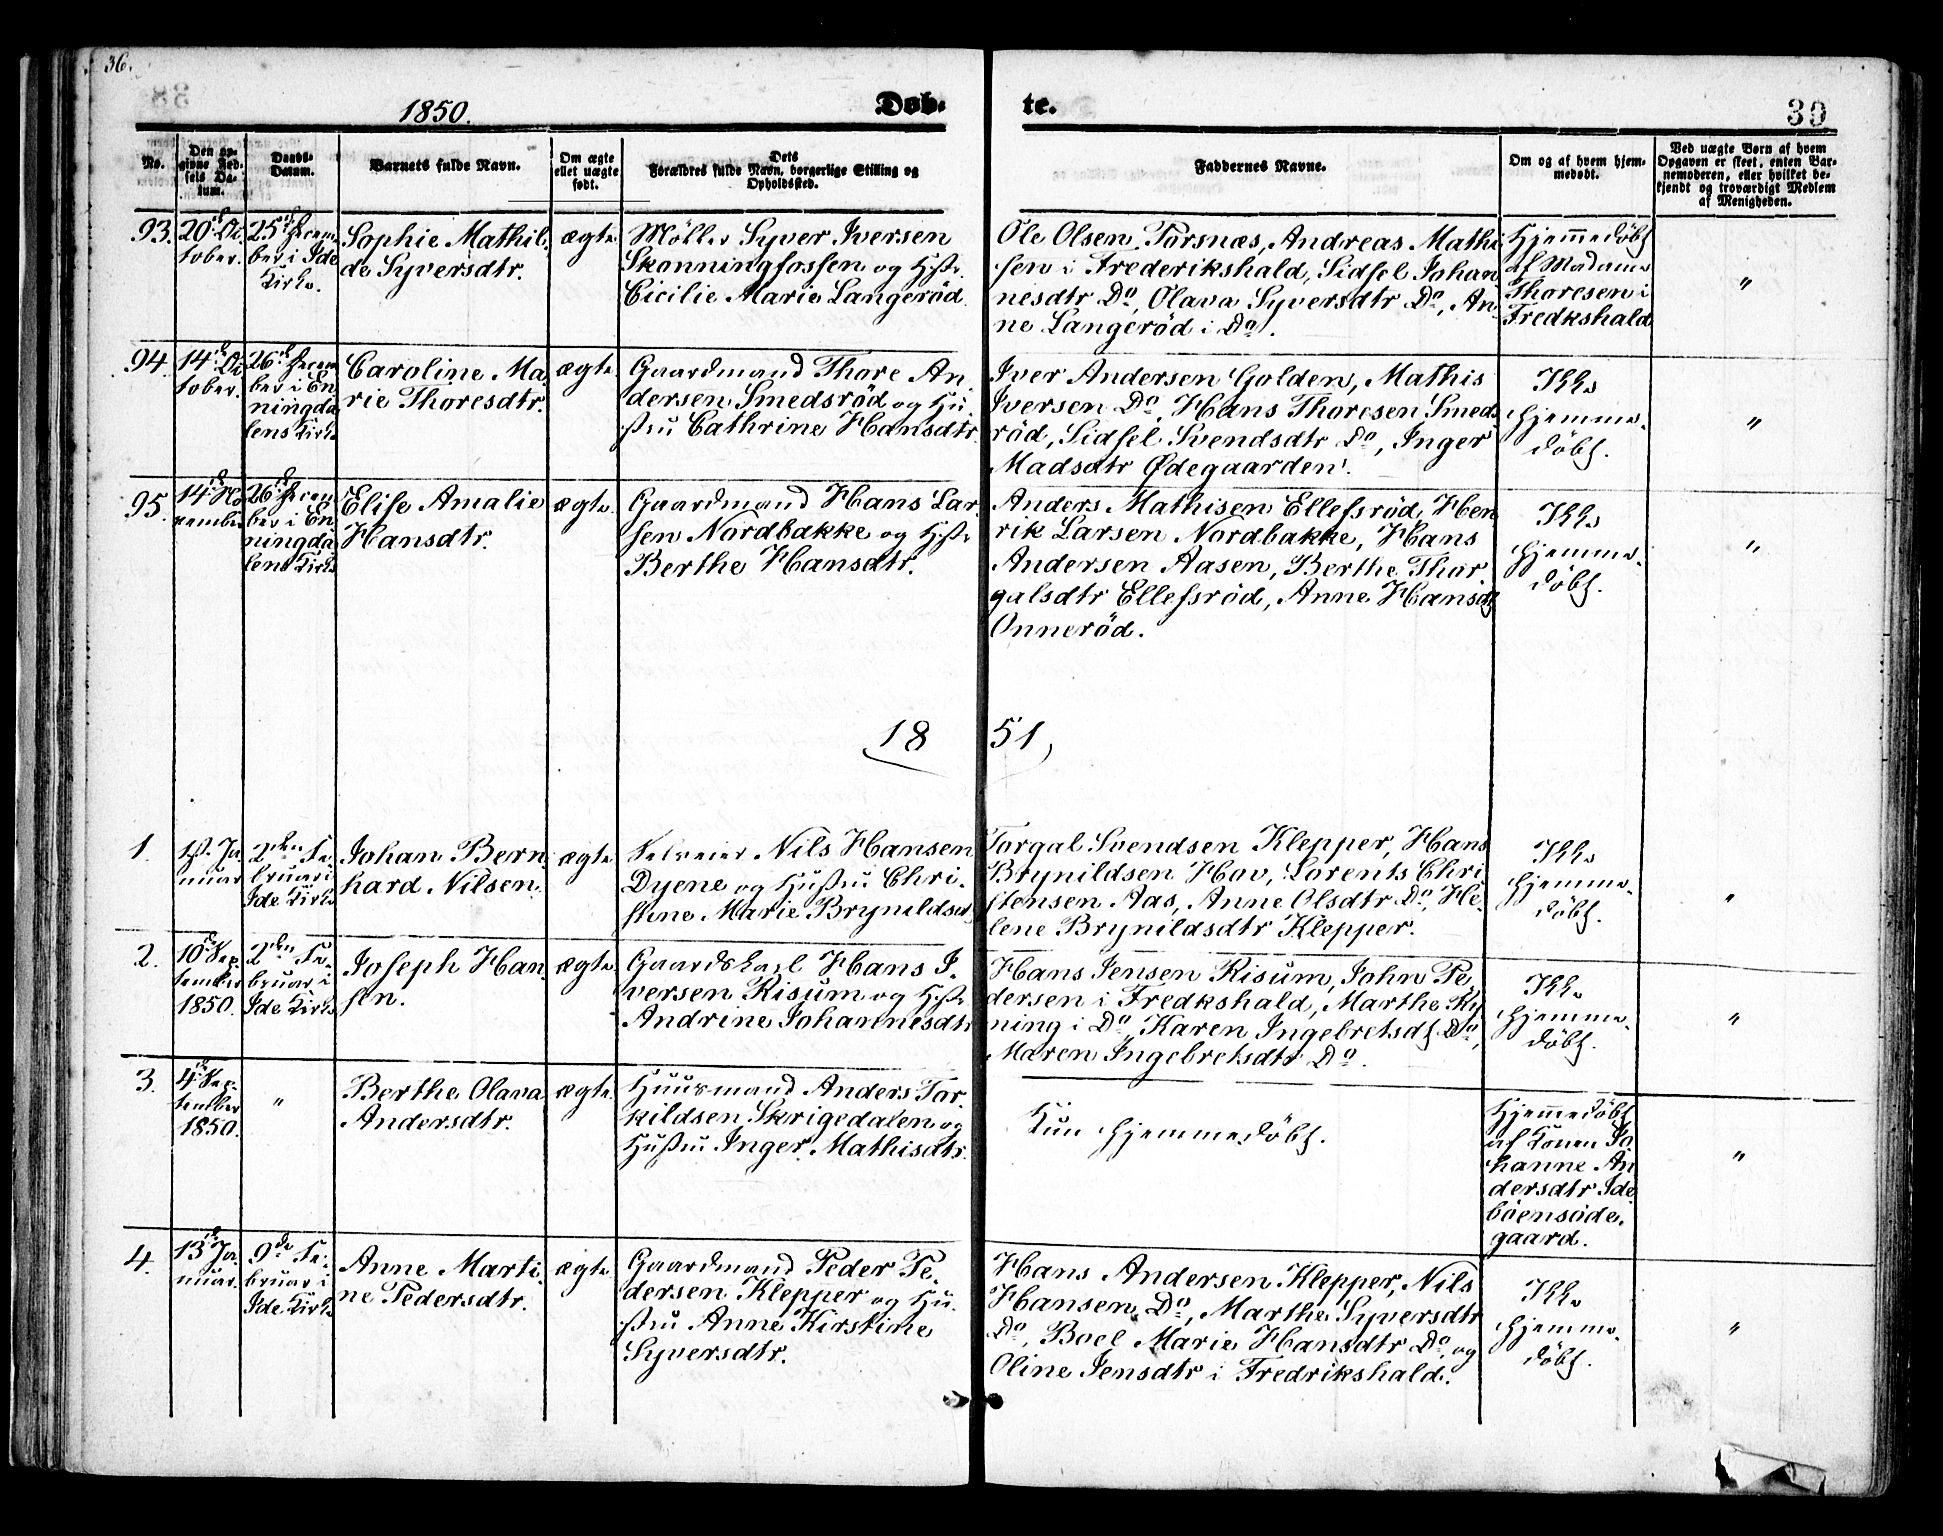 36.
1850.
Døb-
te.
39
No.
Den op-
givne Fød-
sels Da-
tum.
Daabs-
Datum.
Barnets fulde Navn.
Om ægte
ellet uægte
født.
Dets
Forældres fulde Navn, borgerlige Stilling og
Opholdssted.
Faddernes Navne.
Om og af hvem hjem-
medøbt.
Ved uægte Børn af hvem
Opgaven er skeet, enten Bar-
nemoderen, eller hvilket be-
kjendt og troværdigt Medlem
af Menigheden.
93.
20d. Oc
tober.
25d. Decem-
ber i Ide
Kirke.
Sophie Mathil,
de Syversdtr.
ægte
Möller Syver Iversen
Skonningfossen og Hstr.
Cicilie Marie Langeröd.
Ole Olsen Torsnæs, Andreas Mathi
sen i Frederikshald, Sidsel Johan
nesdtr Do, Olava Syversdtr Do, An-
ne Langeröd i Do.
Hjemmedöbt
af Madame
Thoresen i
Fredkshald
"
94.
14d. Oc
tober.
26d. Decem
ber i En
ningda
lens Kirke
Caroline Ma,
rie Thoresdtr.
ægte
Gaardmand Thore An,
dersen Smedsröd og Hu,
stru Cathrine Hansdtr.
Iver Andersen Golden, Mathis
Iversen Do, Hans Thoresen Smeds
röd, Sidsel Svendsdtr Do, Inger
Madsdtr Ødegaarden.
Ikke
hjemme-
döbt.
"
95.
14d. No
vember
26d. Decem
ber i En
ningda
lens Kirke
Elise Amalie
Hansdtr.
ægte.
Gaardmand Hans Lar-
sen Nordbakke og Hstr
Berthe Hansdtr.
Anders Mathisen Ellefsröd, Hen
rik Larsen Nordbakke, Hans
Andersen Aasen, Berthe Thor,
galsdtr Ellefsröd, Anne Hansdt
Onneröd.
Ikke
hjemme-
döbt.
"
18 51
1.
1ste Ja
nuar
2den Fe-
bruar i
Ide Kirke
Johan Bern,
hard Nilsen.
ægte
Selveier Nils Hansen
Dyene og Hustru Chri-
stine Marie Brynildsdt
Torgal Svendsen Klepper, Hans
Brynildsen Hov, Lorents Chri
stensen Aas, Anne Olsdtr Do, He-
lene Brynildsdtr Klepper.
Ikke
hjemme-
döbt.
"
2.
10d. Sep
tember
1850.
2den Fe-
bruar i
Ide Kirke
Joseph Han,
sen.
ægte
Gaardskarl Hans I,
versen Risum og Hstr
Andrine Johannesdtr
Hans Jensen Risum, John Pe,
dersen i Fredkshald, Marthe Ry
ning i Do, Karen Ingebretsdt Do,
Maren Ingebretsdtr Do.
Ikke
hjemme-
döbt.
"
3.
4d. Sep-
tember
1850.
"
Berthe Olava
Andersdtr.
ægte.
Huusmand Anders Tor,
kildsen Skrigedalen og
Hustru Inger Mathisdtr.
Kun hjemmedöbt.
Hjemmedöbt
af Konen Jo
hanne An
dersdtr Ide
böensöde,
gaard.
"
4.
13d. Ja-
nuar.
9de Fe-
bruar i
Ide Kirke
Anne Marti,
ne Pedersdtr.
ægte
Gaardmand Peder Pe,
dersen Klepper og Hu,
stru Anne Kirstine
Syversdtr.
Hans Andersen Klepper, Nils
Hansen Do, Marthe Syversdtr
Do, Boel Marie Hansdtr Do, og
Oline Jensdtr i Fredrikshald.
Ikke
hjemme-
döbt.
"